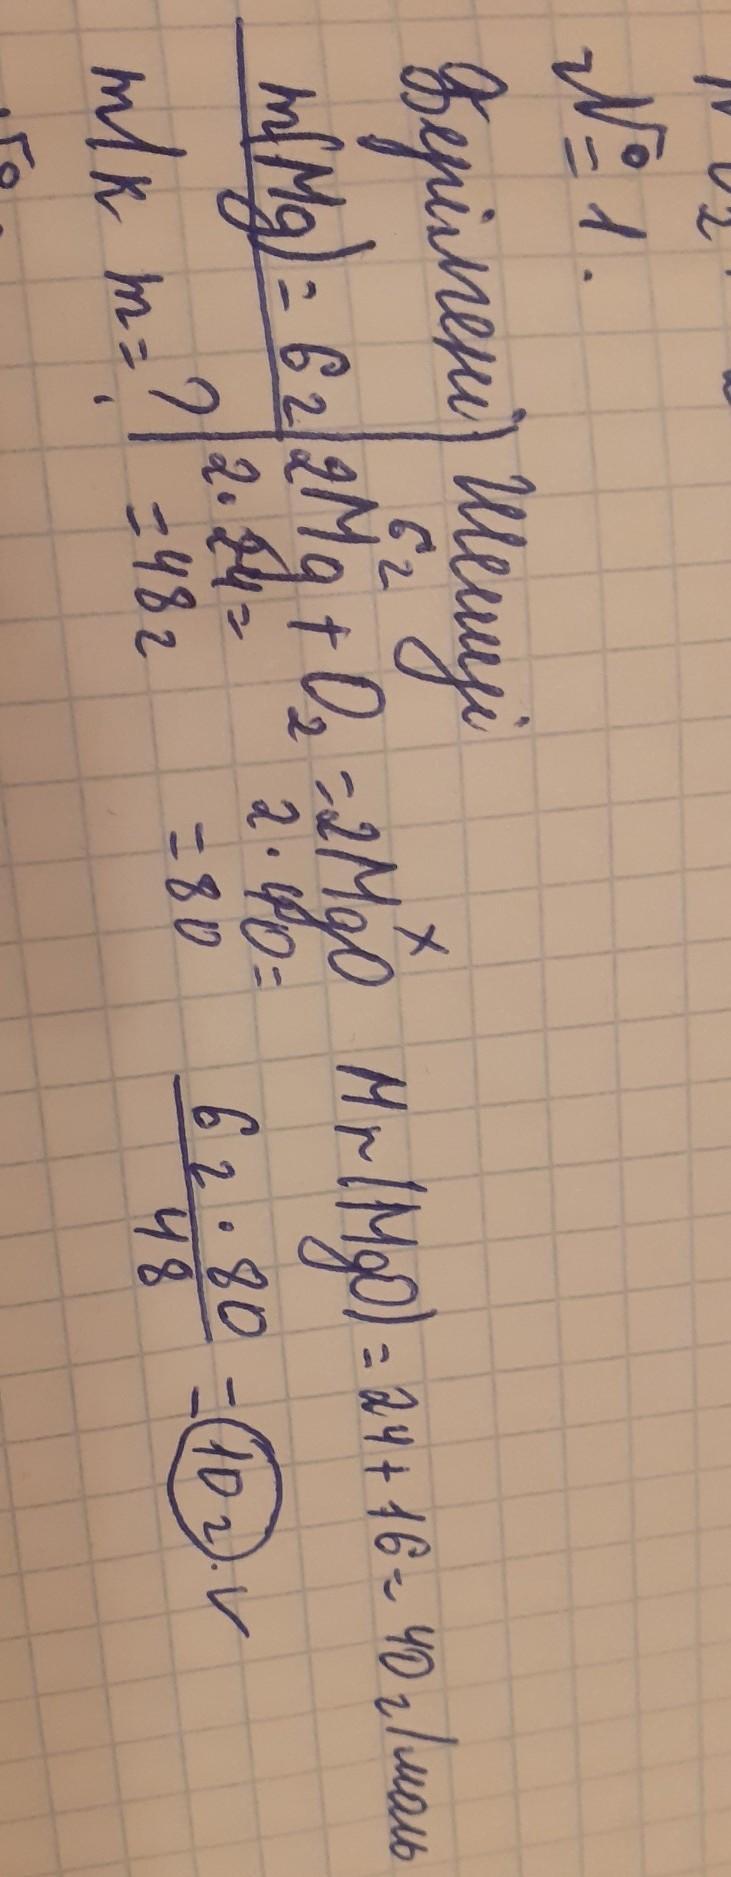 № 1.
Берілгені Шешуі
m(Mg) = 6г
т/к m = ?
6г x
2Mg + O₂ = 2MgO
2·24= 2·40=
=48г =80
Mr(MgO) = 24 + 16 = 40 г/моль
6г · 80
48
= 10 г. V